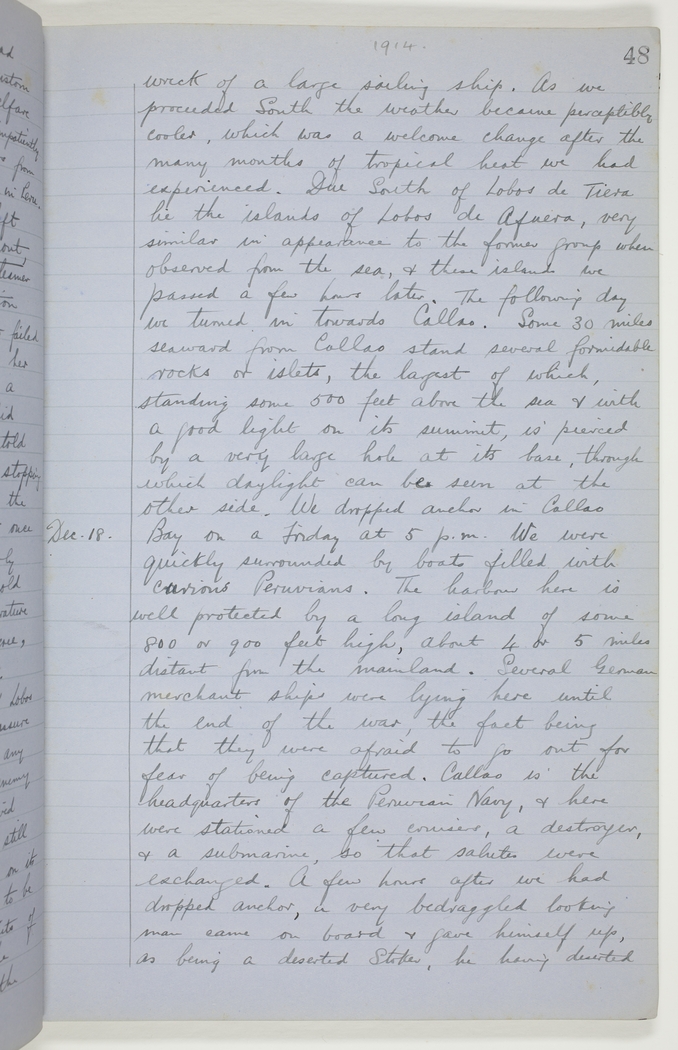 1914.
48
wreck of a large sailing ship. As we
proceeded South the weather became perceptibly
cooler, which was a welcome change after the
many months of tropical heat we had
experienced. Due South of Lobos de Tiera
lie the islands of Lobos de Afuera, very
similar in appearance to the former group when
observed from the sea, & these islands we
passed a few hours later. The following day
we turned in towards Callao. Some 30 miles
seaward from Callao stand several formidable
rocks or islets, the largest of which,
standing some 500 feet above the sea & with
a good light on its summit, is pierced
by a very large hole at its base, through
which daylight can be seen at the
other side. We dropped anchor in Callao
Dec. 18. Bay on a Friday at 5 p.m. We were
quickly surrounded by boats filled with
curious Peruvians. The harbour here is
well protected by a long island of some
800 or 900 feet high, about 4 or 5 miles
distant from the mainland. Several German
merchant ships were lying here until
the end of the war, the fact being
that they were afraid to go out for
fear of being captured. Callao is the
headquarters of the Peruvian Navy, & here
were stationed a few cruisers, a destroyer,
& a submarine, so that salutes were
exchanged. A few hours after we had
dropped anchor, a very bedraggled looking
man came on board & gave himself up,
as being a deserted Stoker, he having deserted